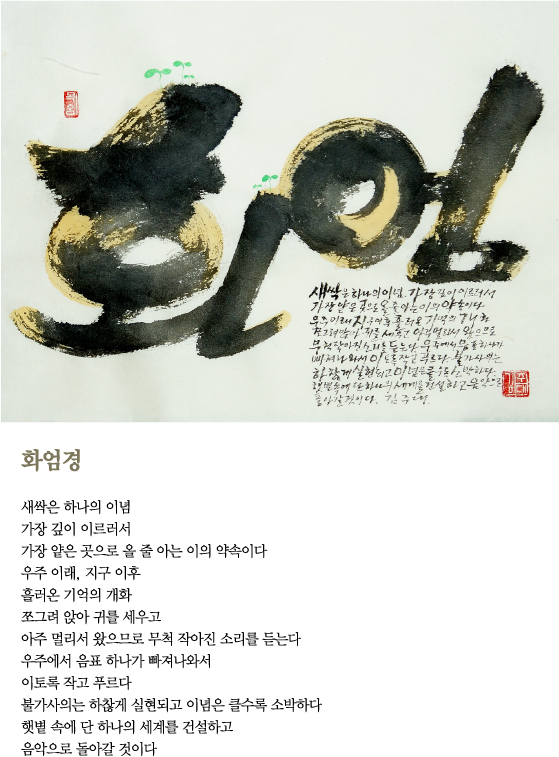 화엄
새싹은 하나의 이념, 가장 깊이 이르러서
가장 얕은 곳으로 올 줄 아는 이의 약속이다
우주 이래 지구 이후 흘러온 기억의 개화
쪼그려 앉아 귀를 세우고 아주 멀리서 왔으므로
무척 작아진 소리를 듣는다 우주에서 음표 하나가
빠져나와서 이토록 작고 푸르다. 불가사의는
하찮게 실현되고 이념은 클수록 소박하다
햇볕 속에 단 하나의 세계를 건설하고 음악으로
돌아갈 것이다. 김주대.
화엄경
새싹은 하나의 이념
가장 깊이 이르러서
가장 얕은 곳으로 올 줄 아는 이의 약속이다
우주 이래, 지구 이후
흘러온 기억의 개화
쪼그려 앉아 귀를 세우고
아주 멀리서 왔으므로 무척 작아진 소리를 듣는다
우주에서 음표 하나가 빠져나와서
이토록 작고 푸르다
불가사의는 하찮게 실현되고 이념은 클수록 소박하다
햇볕 속에 단 하나의 세계를 건설하고
음악으로 돌아갈 것이다